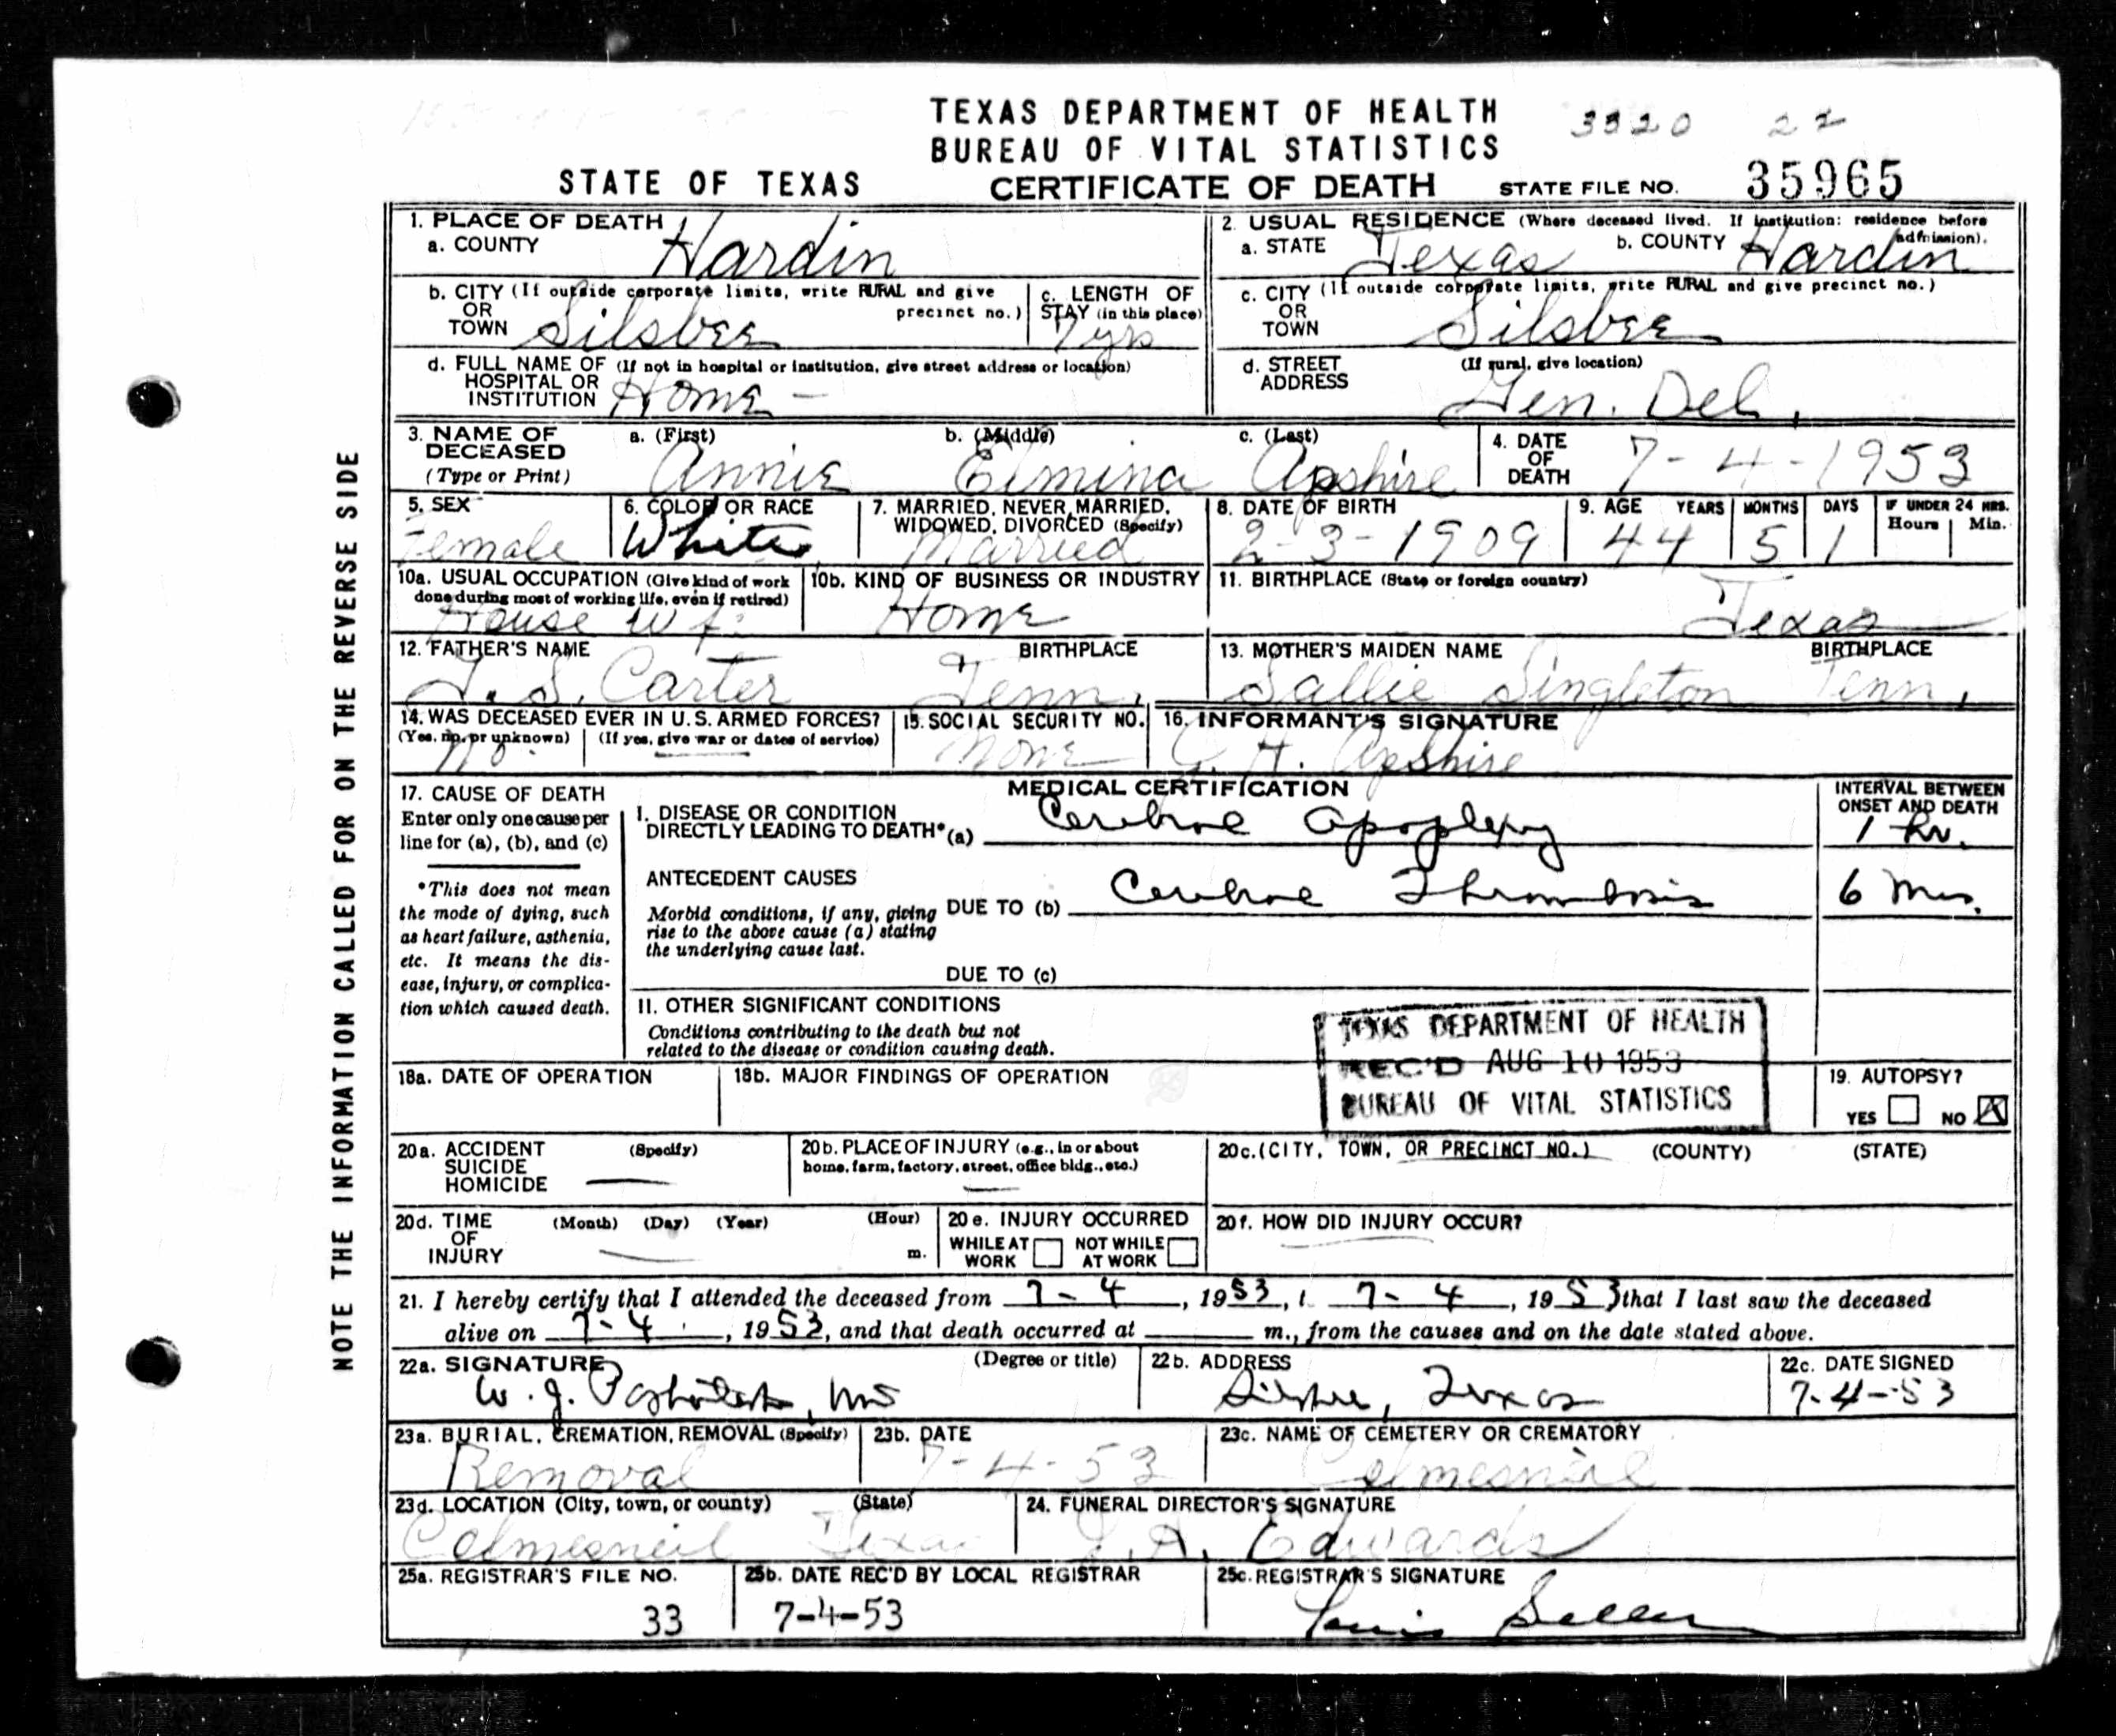 TEXAS DEPARTMENT OF HEALTH
BUREAU OF VITAL STATISTICS
3320 22
STATE OF TEXAS CERTIFICATE OF DEATH STATE FILE NO. 35965
NOTE THE INFORMATION CALLED FOR ON THE REVERSE SIDE
1. PLACE OF DEATH
a. COUNTY Hardin
2. USUAL RESIDENCE (Where deceased lived. If institution: residence before admission).
a. STATE Texas b. COUNTY Hardin
b. CITY (If outside corporate limits, write RURAL and give precinct no.)
OR
TOWN Silsbee
c. LENGTH OF
STAY (in this place)
7 yrs
c. CITY (If outside corporate limits, write RURAL and give precinct no.)
OR
TOWN Silsbee
d. FULL NAME OF (If not in hospital or institution, give street address or location)
HOSPITAL OR
INSTITUTION Home -
d. STREET (If rural, give location)
ADDRESS Gen. Del.
3. NAME OF DECEASED (Type or Print)
a. (First) Annie
b. (Middle) Elmina
c. (Last) Apshire
4. DATE OF DEATH 7-4-1953
5. SEX Female
6. COLOR OR RACE White
7. MARRIED, NEVER MARRIED, WIDOWED, DIVORCED (Specify) Married
8. DATE OF BIRTH 2-3-1909
9. AGE YEARS 44 MONTHS 5 DAYS 1 IF UNDER 24 HRS. Hours Min.
10a. USUAL OCCUPATION (Give kind of work done during most of working life, even if retired)
House Wf.
10b. KIND OF BUSINESS OR INDUSTRY
Home
11. BIRTHPLACE (State or foreign country)
Texas
12. FATHER'S NAME BIRTHPLACE
S. Carter Tenn.
13. MOTHER'S MAIDEN NAME BIRTHPLACE
Sallie Singleton Tenn.
14. WAS DECEASED EVER IN U.S. ARMED FORCES?
(Yes, no, or unknown) (If yes, give war or dates of service)
No
15. SOCIAL SECURITY NO.
None
16. INFORMANT'S SIGNATURE
H. Apshire
MEDICAL CERTIFICATION
INTERVAL BETWEEN ONSET AND DEATH
17. CAUSE OF DEATH
Enter only one cause per
line for (a), (b), and (c)
*This does not mean
the mode of dying, such
as heart failure, asthenia,
etc. It means the dis-
ease, injury, or complica-
tion which caused death.
I. DISEASE OR CONDITION
DIRECTLY LEADING TO DEATH* (a) Cerebral Apoplexy 1 hr.
ANTECEDENT CAUSES
Morbid conditions, if any, giving
rise to the above cause (a) stating
the underlying cause last.
DUE TO (b) Cerebral Thrombosis 6 Mos.
DUE TO (c)
II. OTHER SIGNIFICANT CONDITIONS
Conditions contributing to the death but not
related to the disease or condition causing death.
TEXAS DEPARTMENT OF HEALTH
REC'D AUG 10 1953
BUREAU OF VITAL STATISTICS
18a. DATE OF OPERATION
18b. MAJOR FINDINGS OF OPERATION
19. AUTOPSY?
YES NO X
20a. ACCIDENT (Specify)
SUICIDE
HOMICIDE
20b. PLACE OF INJURY (e.g., in or about
home, farm, factory, street, office bldg., etc.)
20c. (CITY, TOWN, OR PRECINCT NO.) (COUNTY) (STATE)
20d. TIME (Month) (Day) (Year) (Hour)
OF
INJURY m.
20e. INJURY OCCURRED
WHILE AT WORK NOT WHILE AT WORK
20f. HOW DID INJURY OCCUR?
21. I hereby certify that I attended the deceased from 7-4, 1953, 7-4, 1953 that I last saw the deceased
alive on 7-4, 1953, and that death occurred at m., from the causes and on the date stated above.
22a. SIGNATURE (Degree or title)
W. J. MD
22b. ADDRESS
Silsbee, Texas
22c. DATE SIGNED
7-4-53
23a. BURIAL, CREMATION, REMOVAL (Specify)
Removal
23b. DATE
7-4-53
23c. NAME OF CEMETERY OR CREMATORY
Colmesneil
23d. LOCATION (City, town, or county) (State)
Colmesneil Texas
24. FUNERAL DIRECTOR'S SIGNATURE
J. A. Edwards
25a. REGISTRAR'S FILE NO.
33
25b. DATE REC'D BY LOCAL REGISTRAR
7-4-53
25c. REGISTRAR'S SIGNATURE